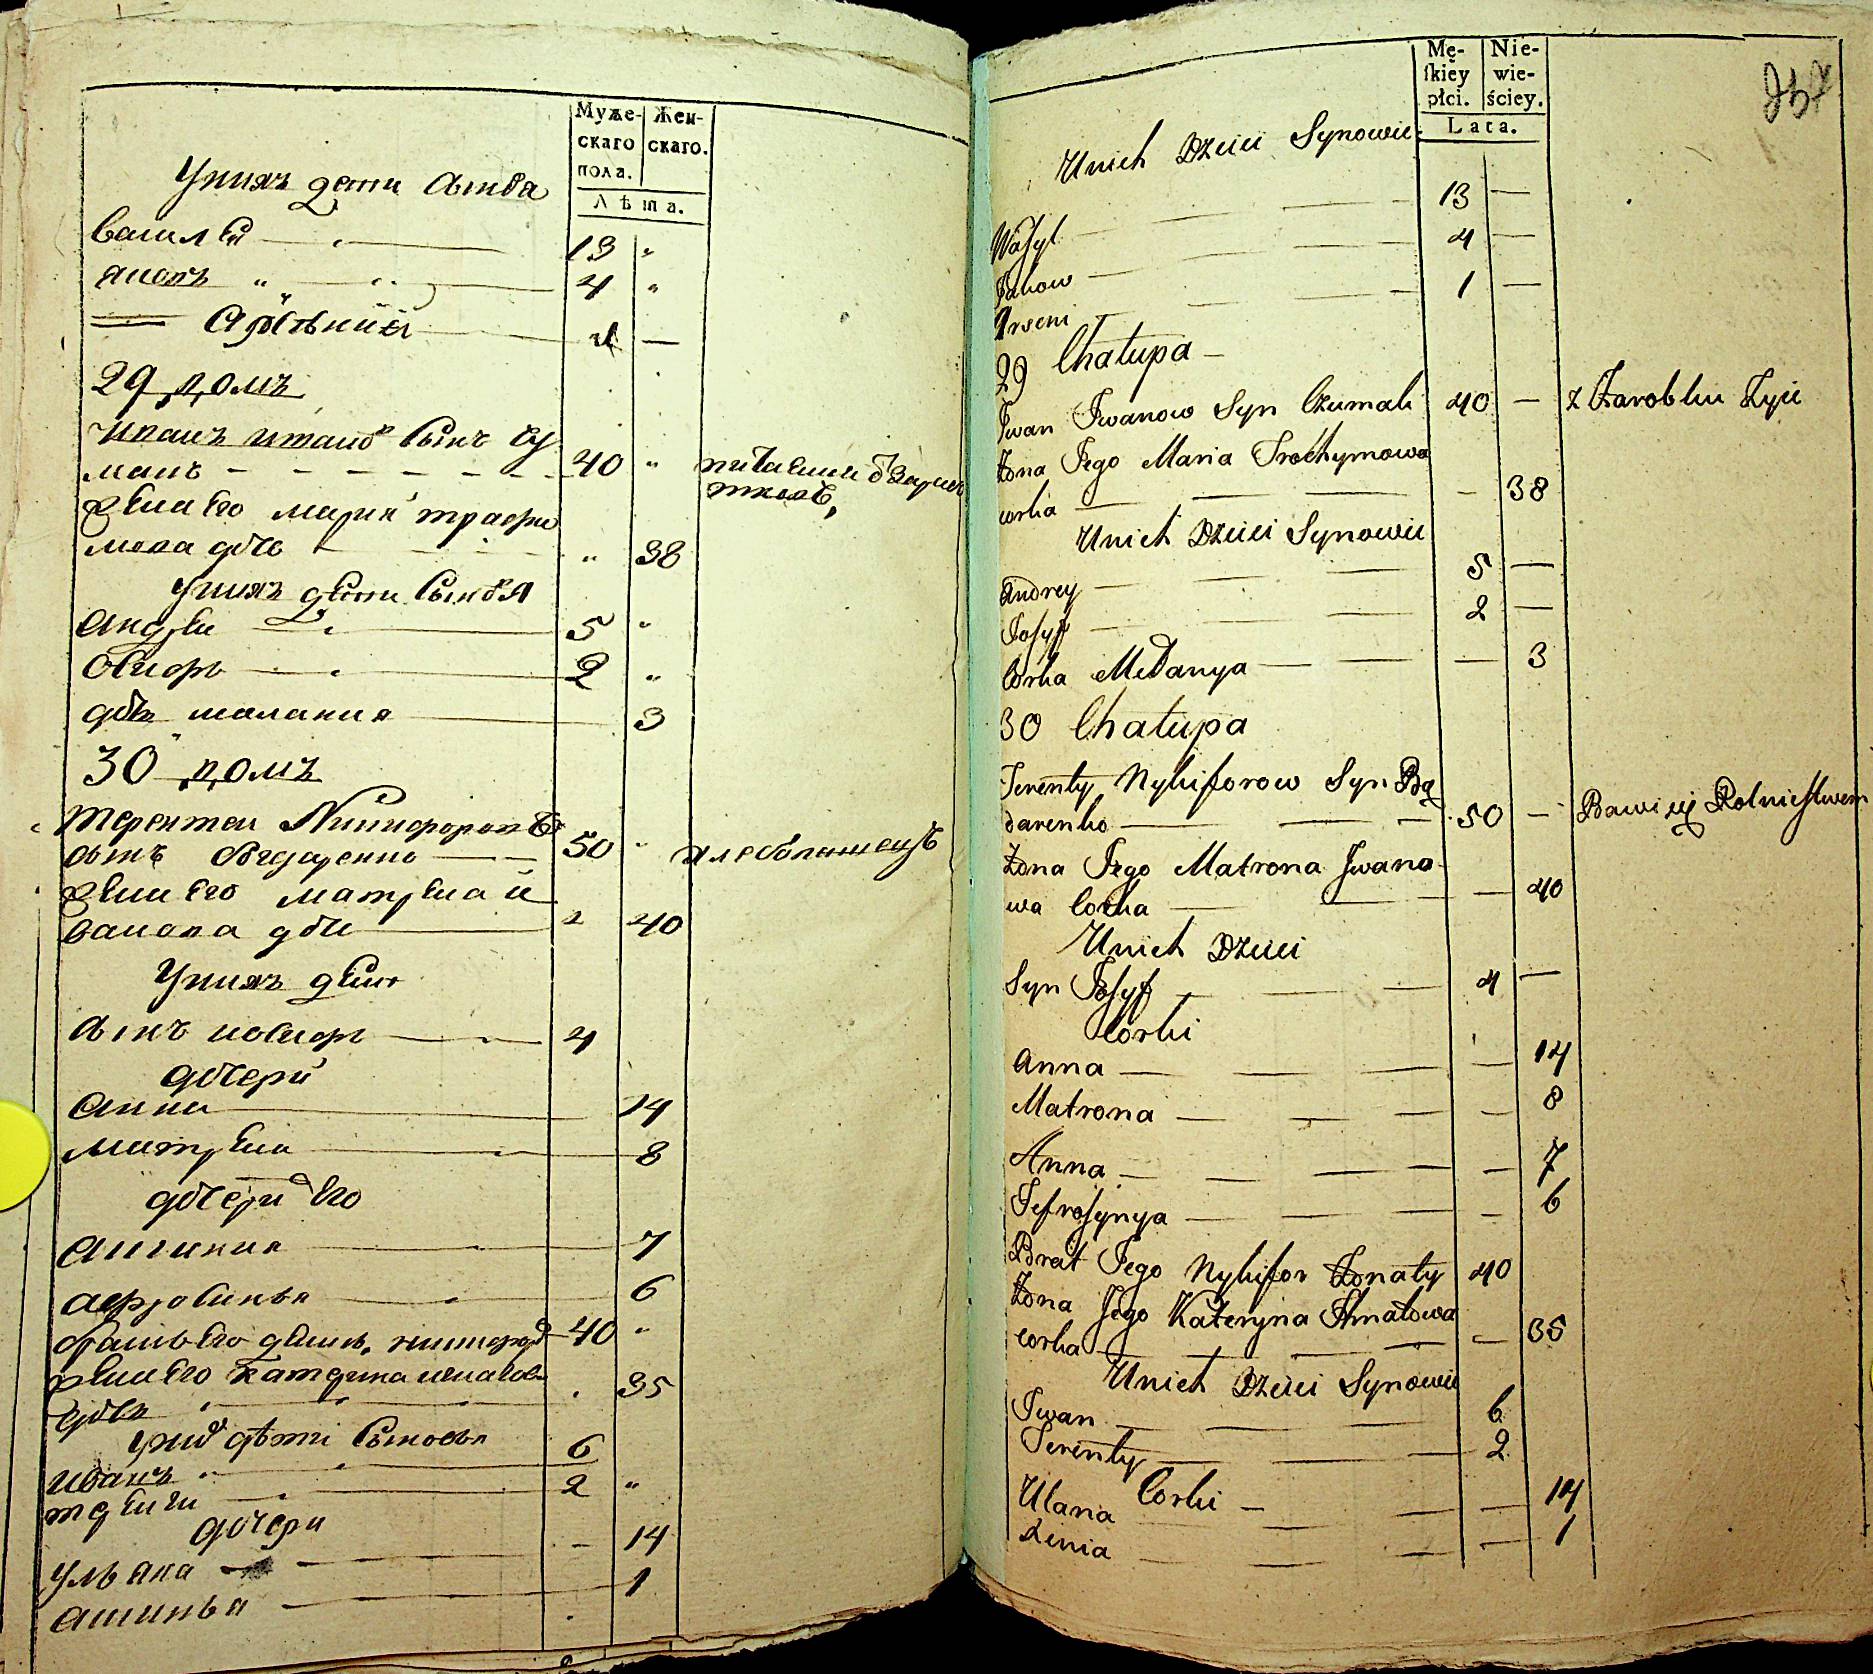 Муже-
скаго
пола.
Жен-
скаго.
Лѣта.
Унихъ дети Сынва
Василей 13 "
Яковъ " 4 "
Арсѣний 1 —
29 домъ
Иванъ Сынъ
40 "
жена Его мария трафи
мова дочь " 38
Унихъ дети Сыновя
Андреи 5 "
Осифъ 2 "
дочь малания 3
30 домъ
терентеи Никифоровъ
Сынъ 50 " хлебопашецъ
жена Его матрена и
ванова дочь 40
Унихъ дети
Сынъ иосифъ 4
дочери
Анна 14
матрена 8
дочери Его
7
афросинья 6
братъ Его 40 "
жена Его катерина 35
дочь
дѣти Сыновья
иванъ 6
2 "
дочери
ульяна — 14
1
Mę-
ſkiey
płci.
Nie-
wie-
ściey.
Lata.
Unich Dzieci Synowie
13 —
Wasyl 4 —
Jakow 1 —
Arseni
29 Chałupa —
Iwan Iwanow Syn 40 — z Zarobku Żyie
Żona Jego Maria Trochymowa
corka — 38
Unich Dzieci Synowie
Andrey 5 —
Josyf 2 —
Corka Mełanya — 3
30 Chałupa
Terenty Nykiforow Syn Bą
darenko 50 — Bawi się Rolnictwem
Żona Jego Matrona Iwano
wa Corka — 40
Unich Dzieci
Syn Josyf 4 —
Corki
Anna — 14
Matrona — 8
Anna — 7
Jefrosynya — 6
Brat Jego Nykifor Żonaty 40
Żona Jego Kateryna
corka — 35
Unich Dzieci Synowie
Iwan 6
Terenty 2
Corki —
Ulana — 14
Xenia — 1